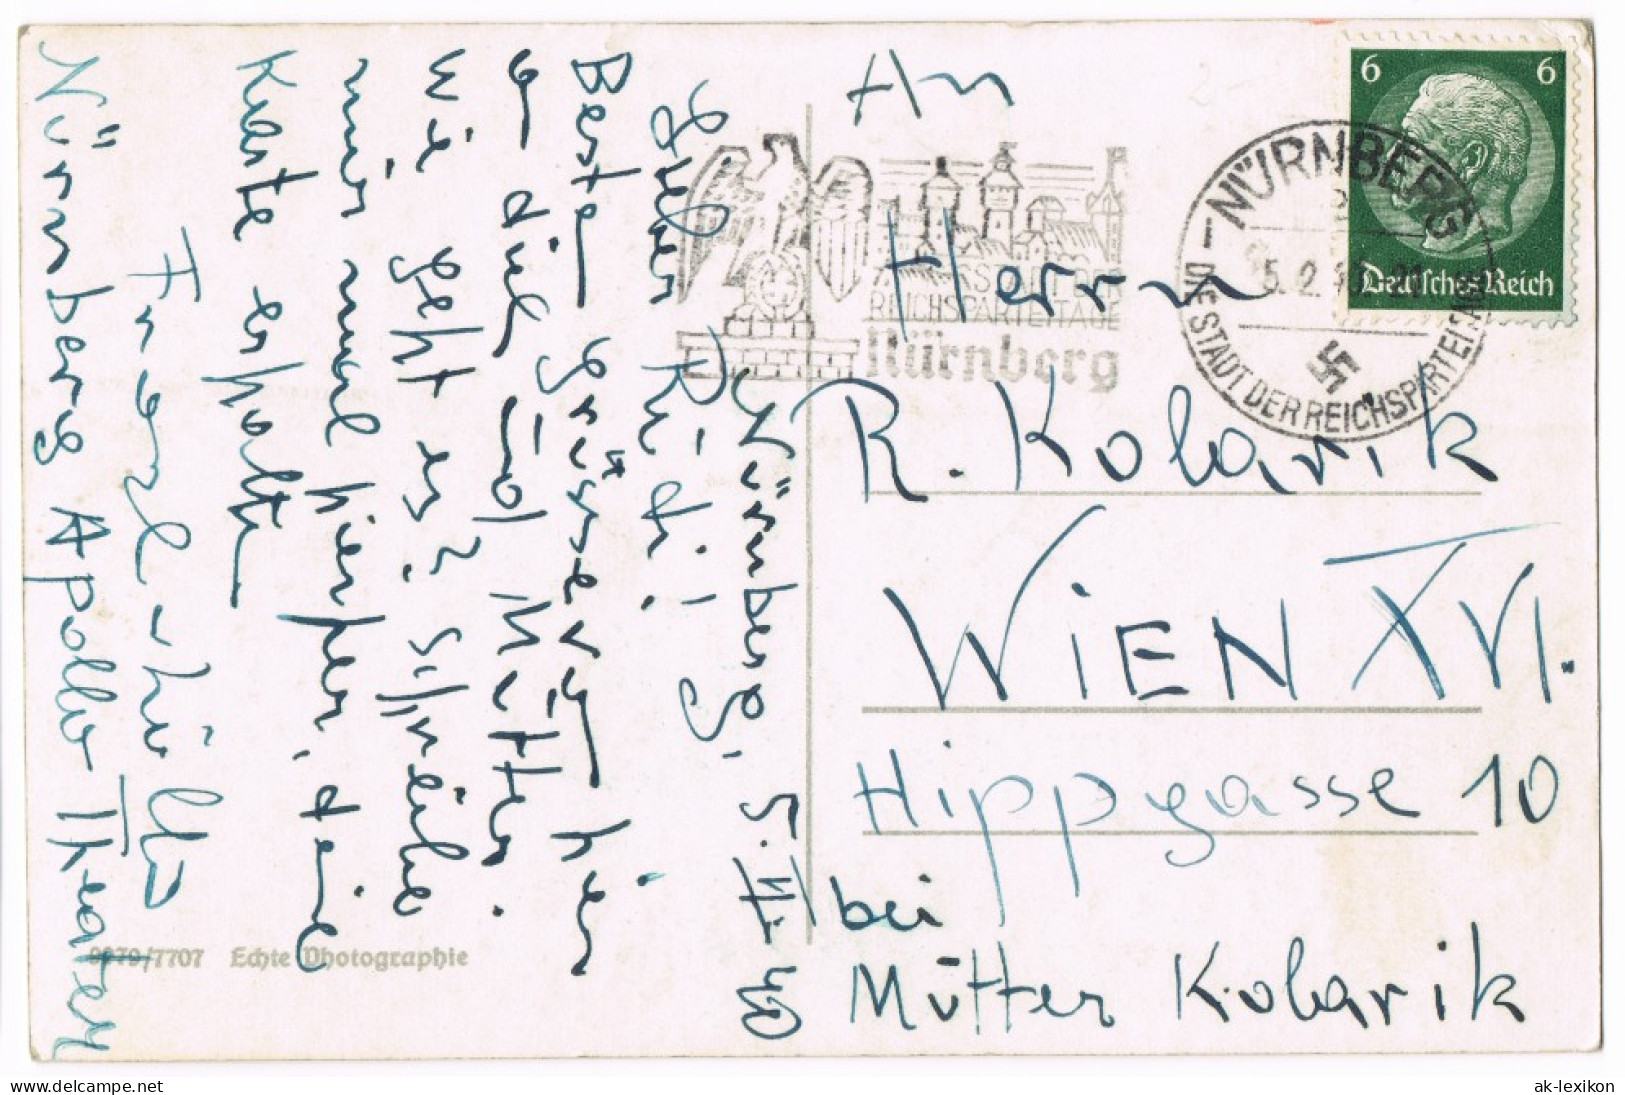 Nürnberg, 5. II. 40
Lieber Rudi!
Beste Grüsse von hier
an dich und Mutter.
Wie geht es? Schreibe
mir mal hierher, deine
Karte erhalten
Nürnberg Apollo Theater
9979/7707 Echte Photographie
An
Herrn
R. Kolarik
WIEN XVI.
Hippgasse 10
bei
Mutter Kolarik
STADT DER
REICHSPARTEITAGE
Nürnberg
NÜRNBERG
5.2.
DIE STADT DER REICHSPARTEITAGE
6 6
Deutsches Reich
ak-lexikon.de
ak-lexikon